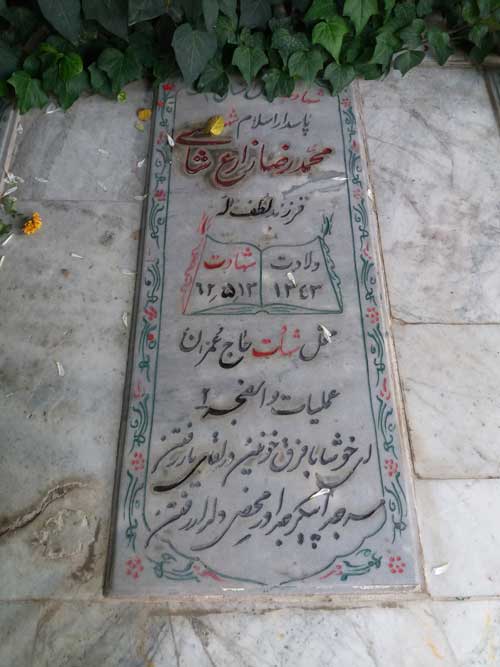 پاسدار اسلام شهید
محمدرضا زارع شاهی
فرزند لطف اله
ولادت شهادت
۱۳۴۳ ۶۲٫۵٫۱۳
محل شهادت حاج عمران
عملیات والفجر۲
ای خوشا با فرق خونین در لقای یار رفتن
سر جدا پیکر جدا در محفل دلدار رفتن